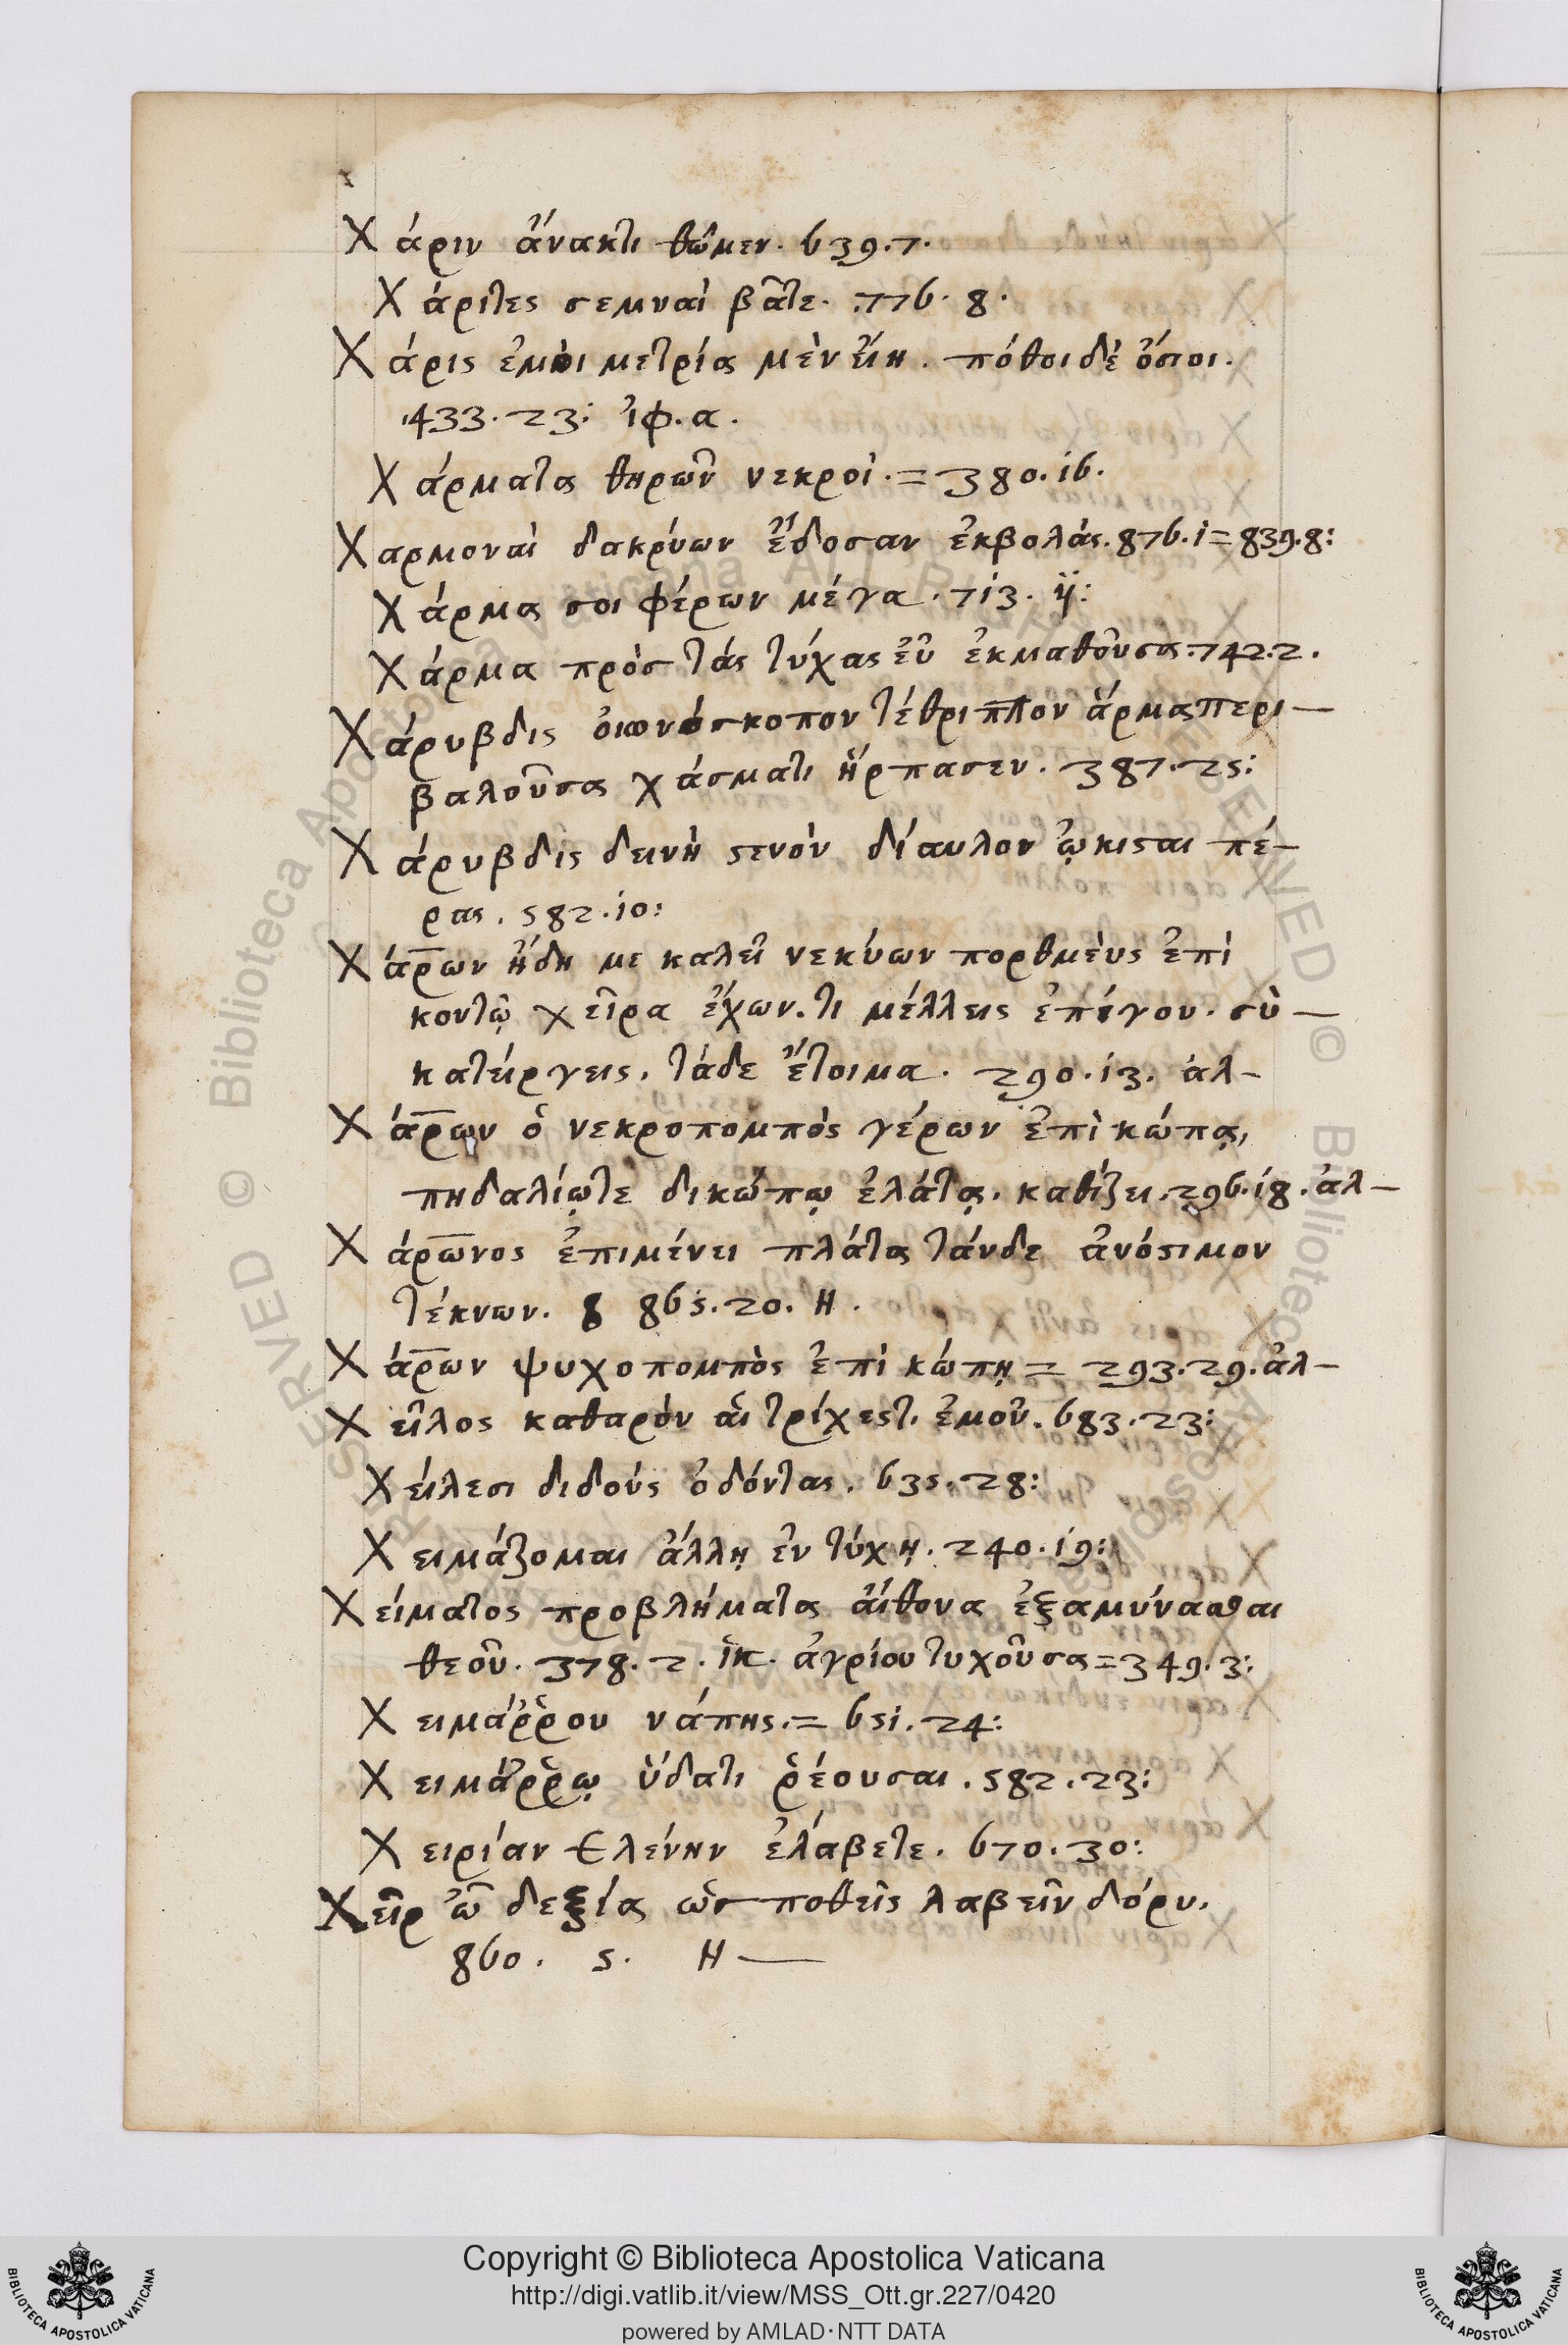 Χάριν ἄνακτι θῶμεν. 639.7.
Χάριτες σεμναὶ βᾶτε. 776. 8.
Χάρις ἐμοὶ μετρία μὲν εἴη. πόθοι δὲ ὅσιοι.
433. 23: ἰφ. α.
Χάρματα θηρῶν νεκροὶ. = 380. 16.
Χαρμοναὶ δακρύων ἔδοσαν ἐκβολάς. 876. 1 = 839.8:
Χάρμα σοι φέρων μέγα. 713. 11:
Χάρμα πρὸς τάς τύχας εὖ ἐκμαθοῦσα. 742.2.
Χάρυβδις οἰωνόσκοπον τέθριππον ἅρμα περι—
βαλοῦσα χάσματι ἥρπασεν. 387. 25:
Χάρυβδις δεινὴ στενὸν δίαυλον ᾤκισται πέ-
ρας. 582. 10:
Χάρων ἤδη με καλεῖ νεκύων πορθμεὺς ἐπὶ
κοντῷ χεῖρα ἔχων. τι μέλλεις ἐπείγου. σὺ —
κατείργεις. τάδε ἕτοιμα. 290. 13. ἀλ-
Χάρων ὁ νεκροπομπὸς γέρων ἐπὶ κώπᾳ,
πηδαλίῳτε δικώπῳ ἐλάτᾳ. καθίζει. 296. 18. ἀλ—
Χάρωνος ἐπιμένει πλάτα τάνδε ἀνόστιμον
τέκνων. 8 865. 20. Η.
Χάρων ψυχοπομπὸς ἐπὶ κώπῃ = 293. 29. ἀλ—
Χεῖλος καθαρὸν αἱ τρίχεςτ. ἐμοῦ. 683. 23:
Χείλεσι διδούς ὀδόντας. 635. 28:
Χειμάζομαι ἄλλῃ ἐν τύχῃ. 240. 19:
Χείματος προβλήματα αἴθονα ἐξαμύνασθαι
θεοῦ. 378. 2. ἱκ. ἀγρίου τυχοῦσα = 349. 3:
Χειμάῤῥου νάπης. = 651. 24:
Χειμάῤῥῳ ὕδατι ῥέουσαι. 582. 23:
Χειρίαν Ελένην ἐλάβετε. 670. 30:
Χεῖρ ὦ δεξία ὡς ποθεῖς λαβεῖν δόρυ.
860. 5. Η —
Copyright © Biblioteca Apostolica Vaticana
http://digi.vatlib.it/view/MSS_Ott.gr.227/0420
powered by AMLAD·NTT DATA
BIBLIOTECA APOSTOLICA VATICANA
BIBLIOTECA APOSTOLICA VATICANA